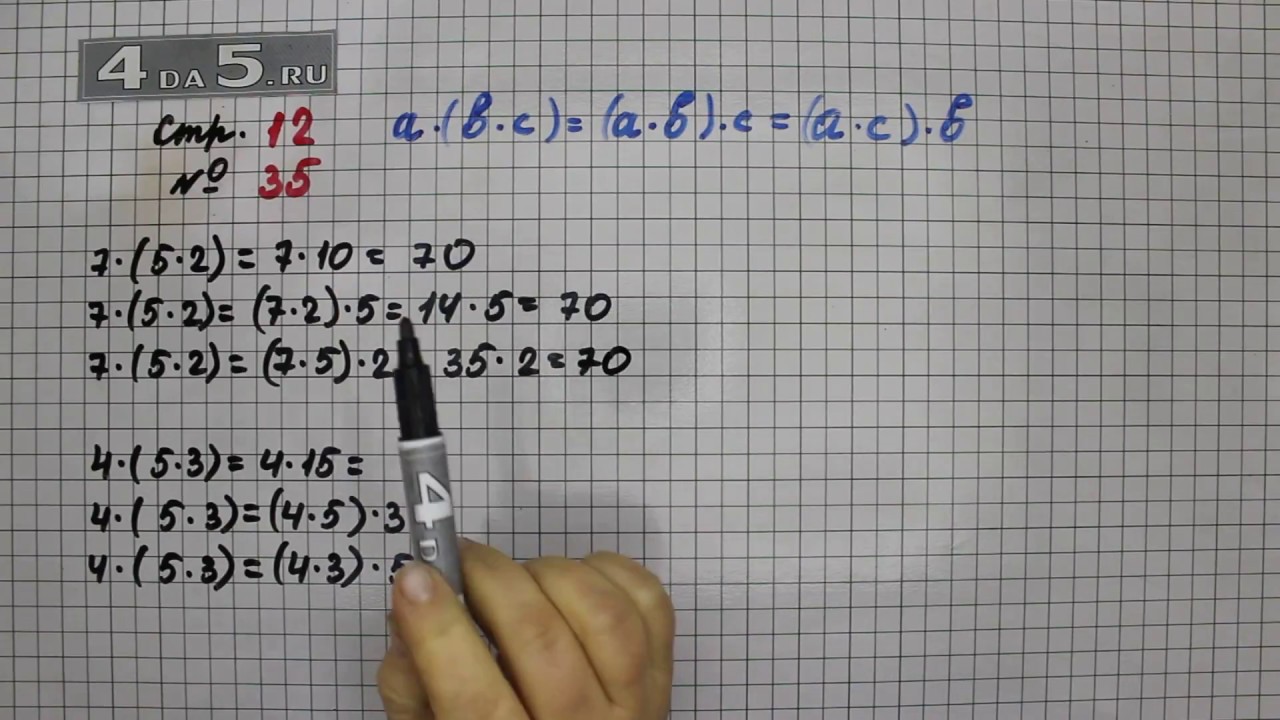 4 DA 5.RU
Стр. 12
№ 35
a·(в·c)=(a·в)·c=(a·c)·в
7·(5·2)=7·10=70
7·(5·2)=(7·2)·5=14·5=70
7·(5·2)=(7·5)·2 35·2=70
4·(5·3)=4·15=
4·(5·3)=(4·5)·3
4·(5·3)=(4·3)·5
4 D